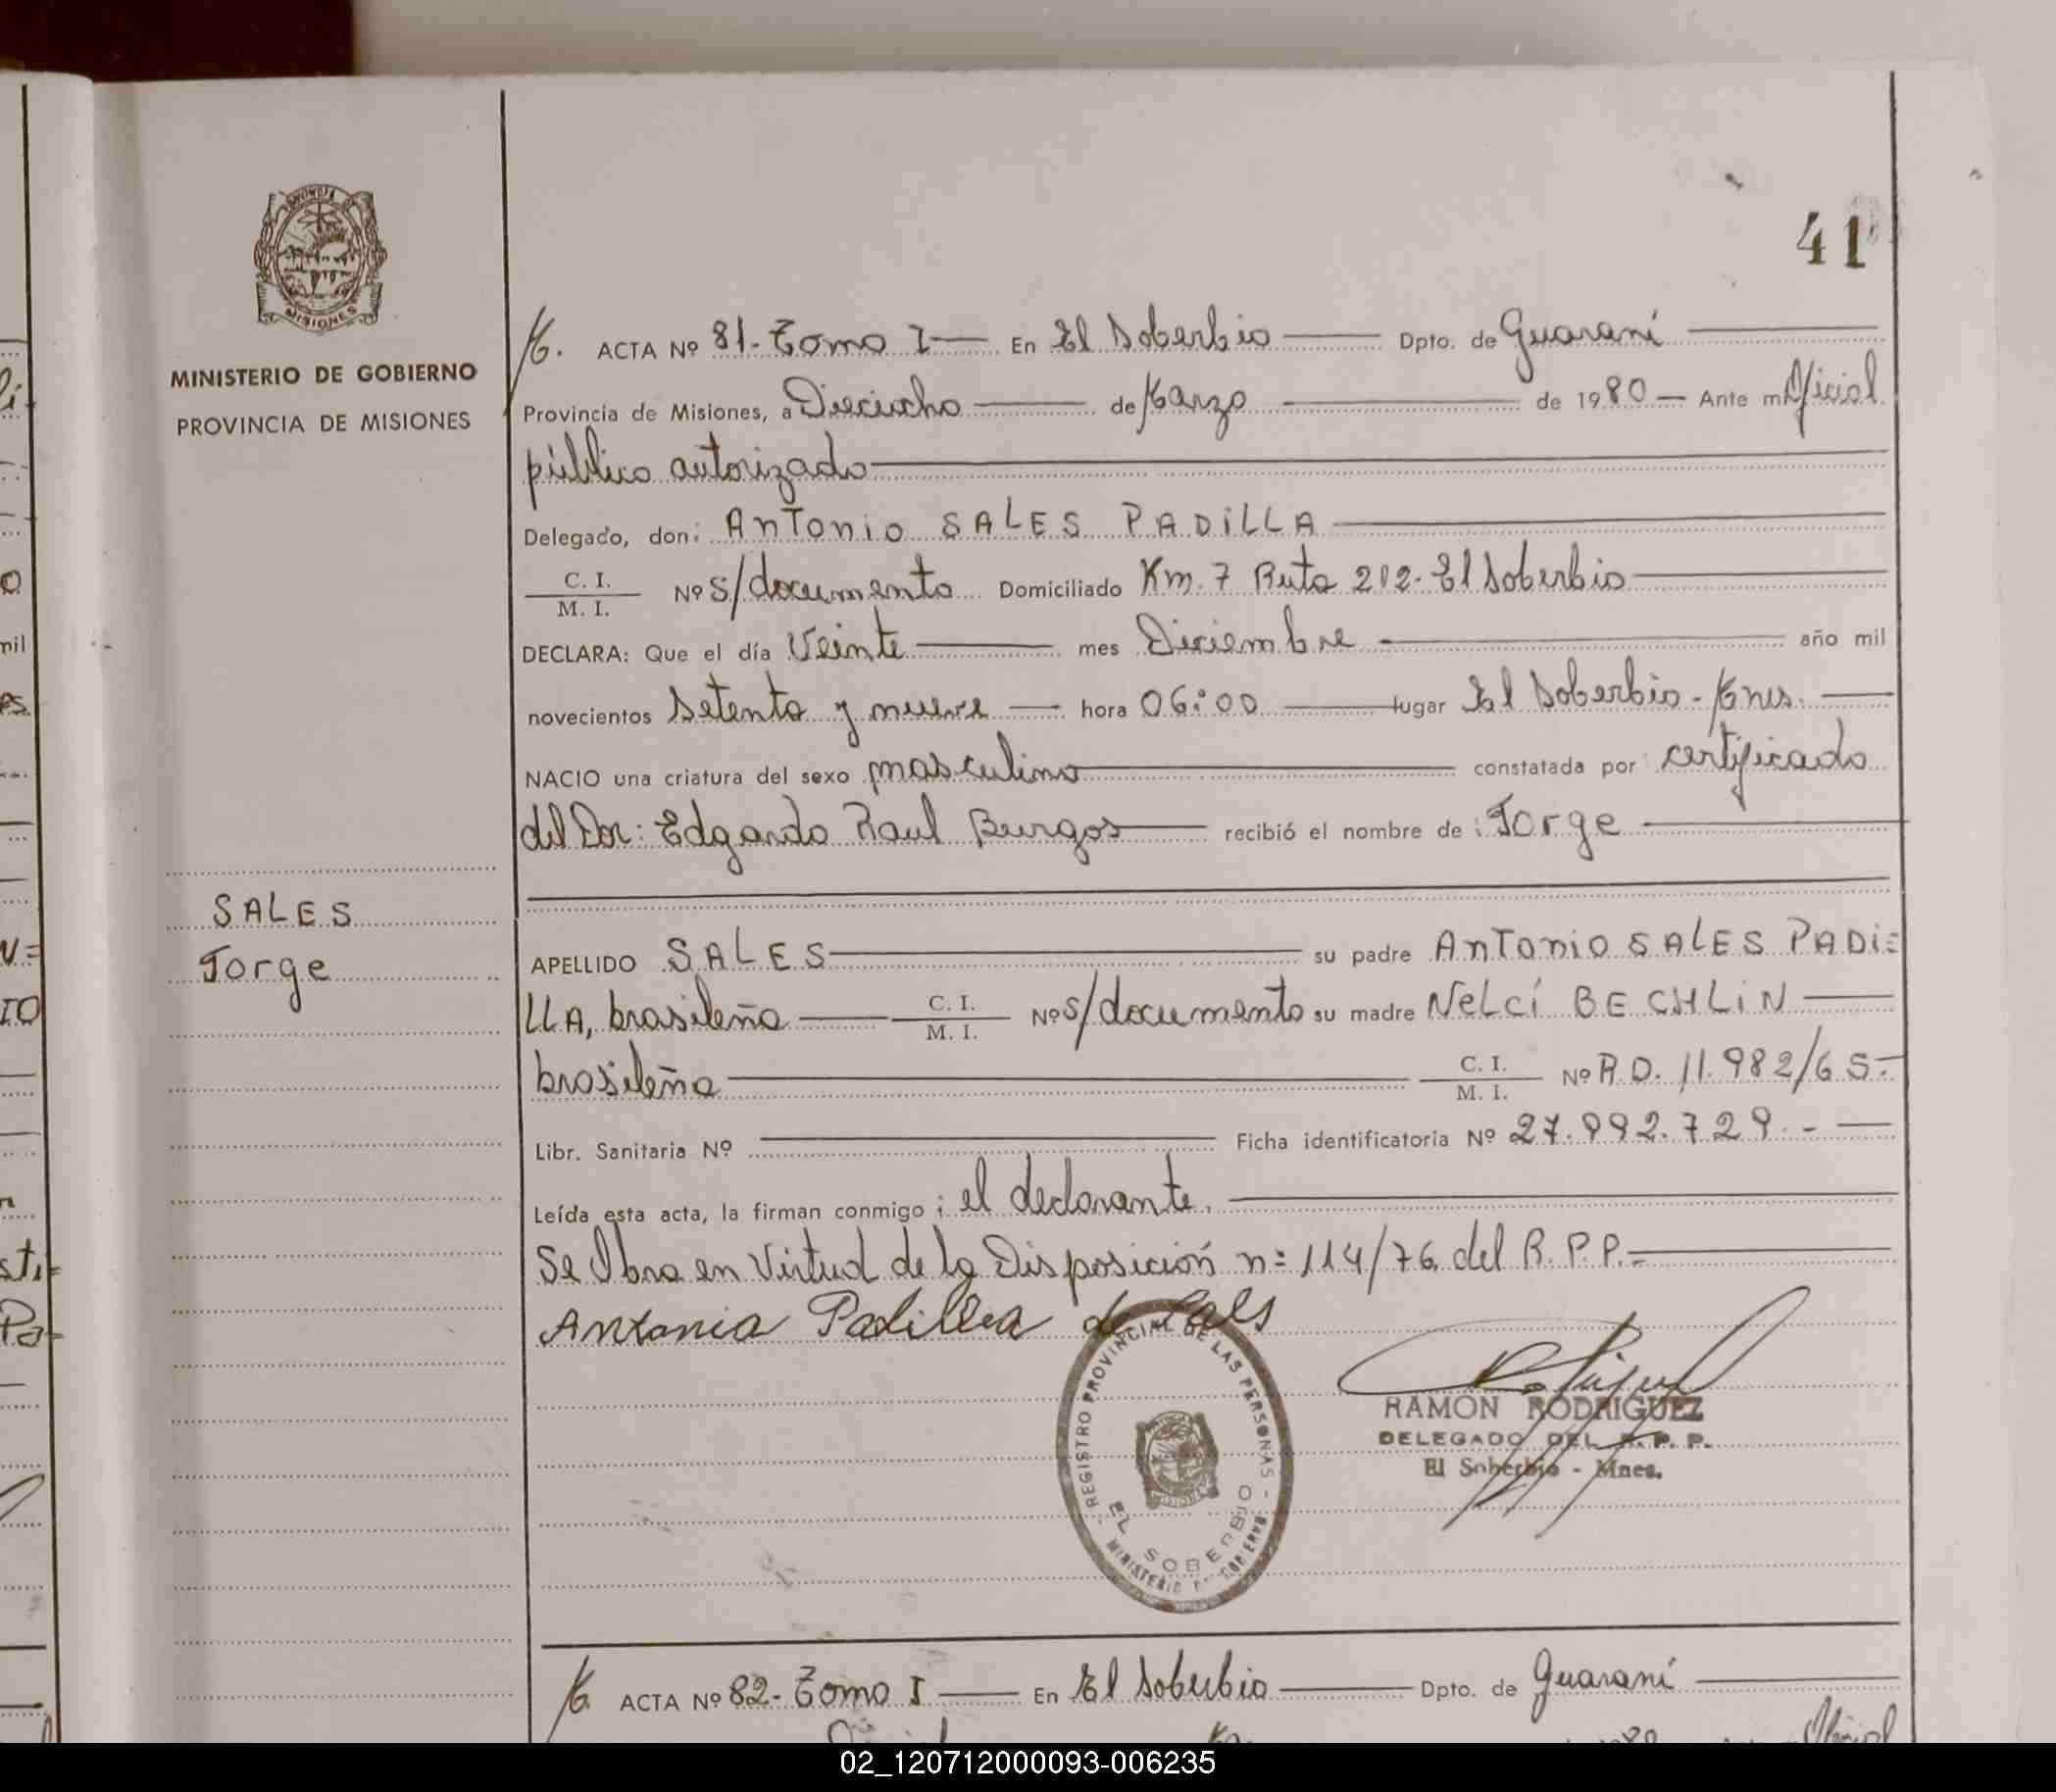 41
MISIONES
MINISTERIO DE GOBIERNO
PROVINCIA DE MISIONES
SALES
Jorge
M. ACTA Nº 81- Tomo I — En El Soberbio — Dpto. de Guaraní —
Provincia de Misiones, a Dieciocho — de Marzo — de 1980 — Ante mi Oficial
público autorizado —
Delegado, don: Antonio SALES PADILLA —
C. I. / M. I. Nº S/documento Domiciliado Km. 7 Ruta 212- El Soberbio —
DECLARA: Que el día Veinte — mes Diciembre — año mil
novecientos Setenta y nueve — hora 06:00 — lugar El Soberbio - Mnes. —
NACIO una criatura del sexo masculino — constatada por certificado
del Dor: Edgardo Raul Burgos — recibió el nombre de: Jorge —
APELLIDO SALES — su padre Antonio SALES PADI=
LLA, brasileña — C. I. / M. I. Nº S/documento su madre Nelcí BECHLIN —
brasileña — C. I. / M. I. Nº R.D. 11.982/65.-
Libr. Sanitaria Nº — Ficha identificatoria Nº 27.992.729.- —
Leída esta acta, la firman conmigo: el declarante. —
Se Obra en Virtud de la Disposición n= 114/76 del R.P.P.= —
Antonia Padillea de Sals
REGISTRO PROVINCIAL DE LAS PERSONAS - MINISTERIO DE GOBIERNO
EL SOBERBIO
RAMON RODRIGUEZ
DELEGADO DEL R. P. P.
El Soberbio - Mnes.
M. ACTA Nº 82- Tomo I — En El Soberbio — Dpto. de Guaraní —
02_120712000093-006235